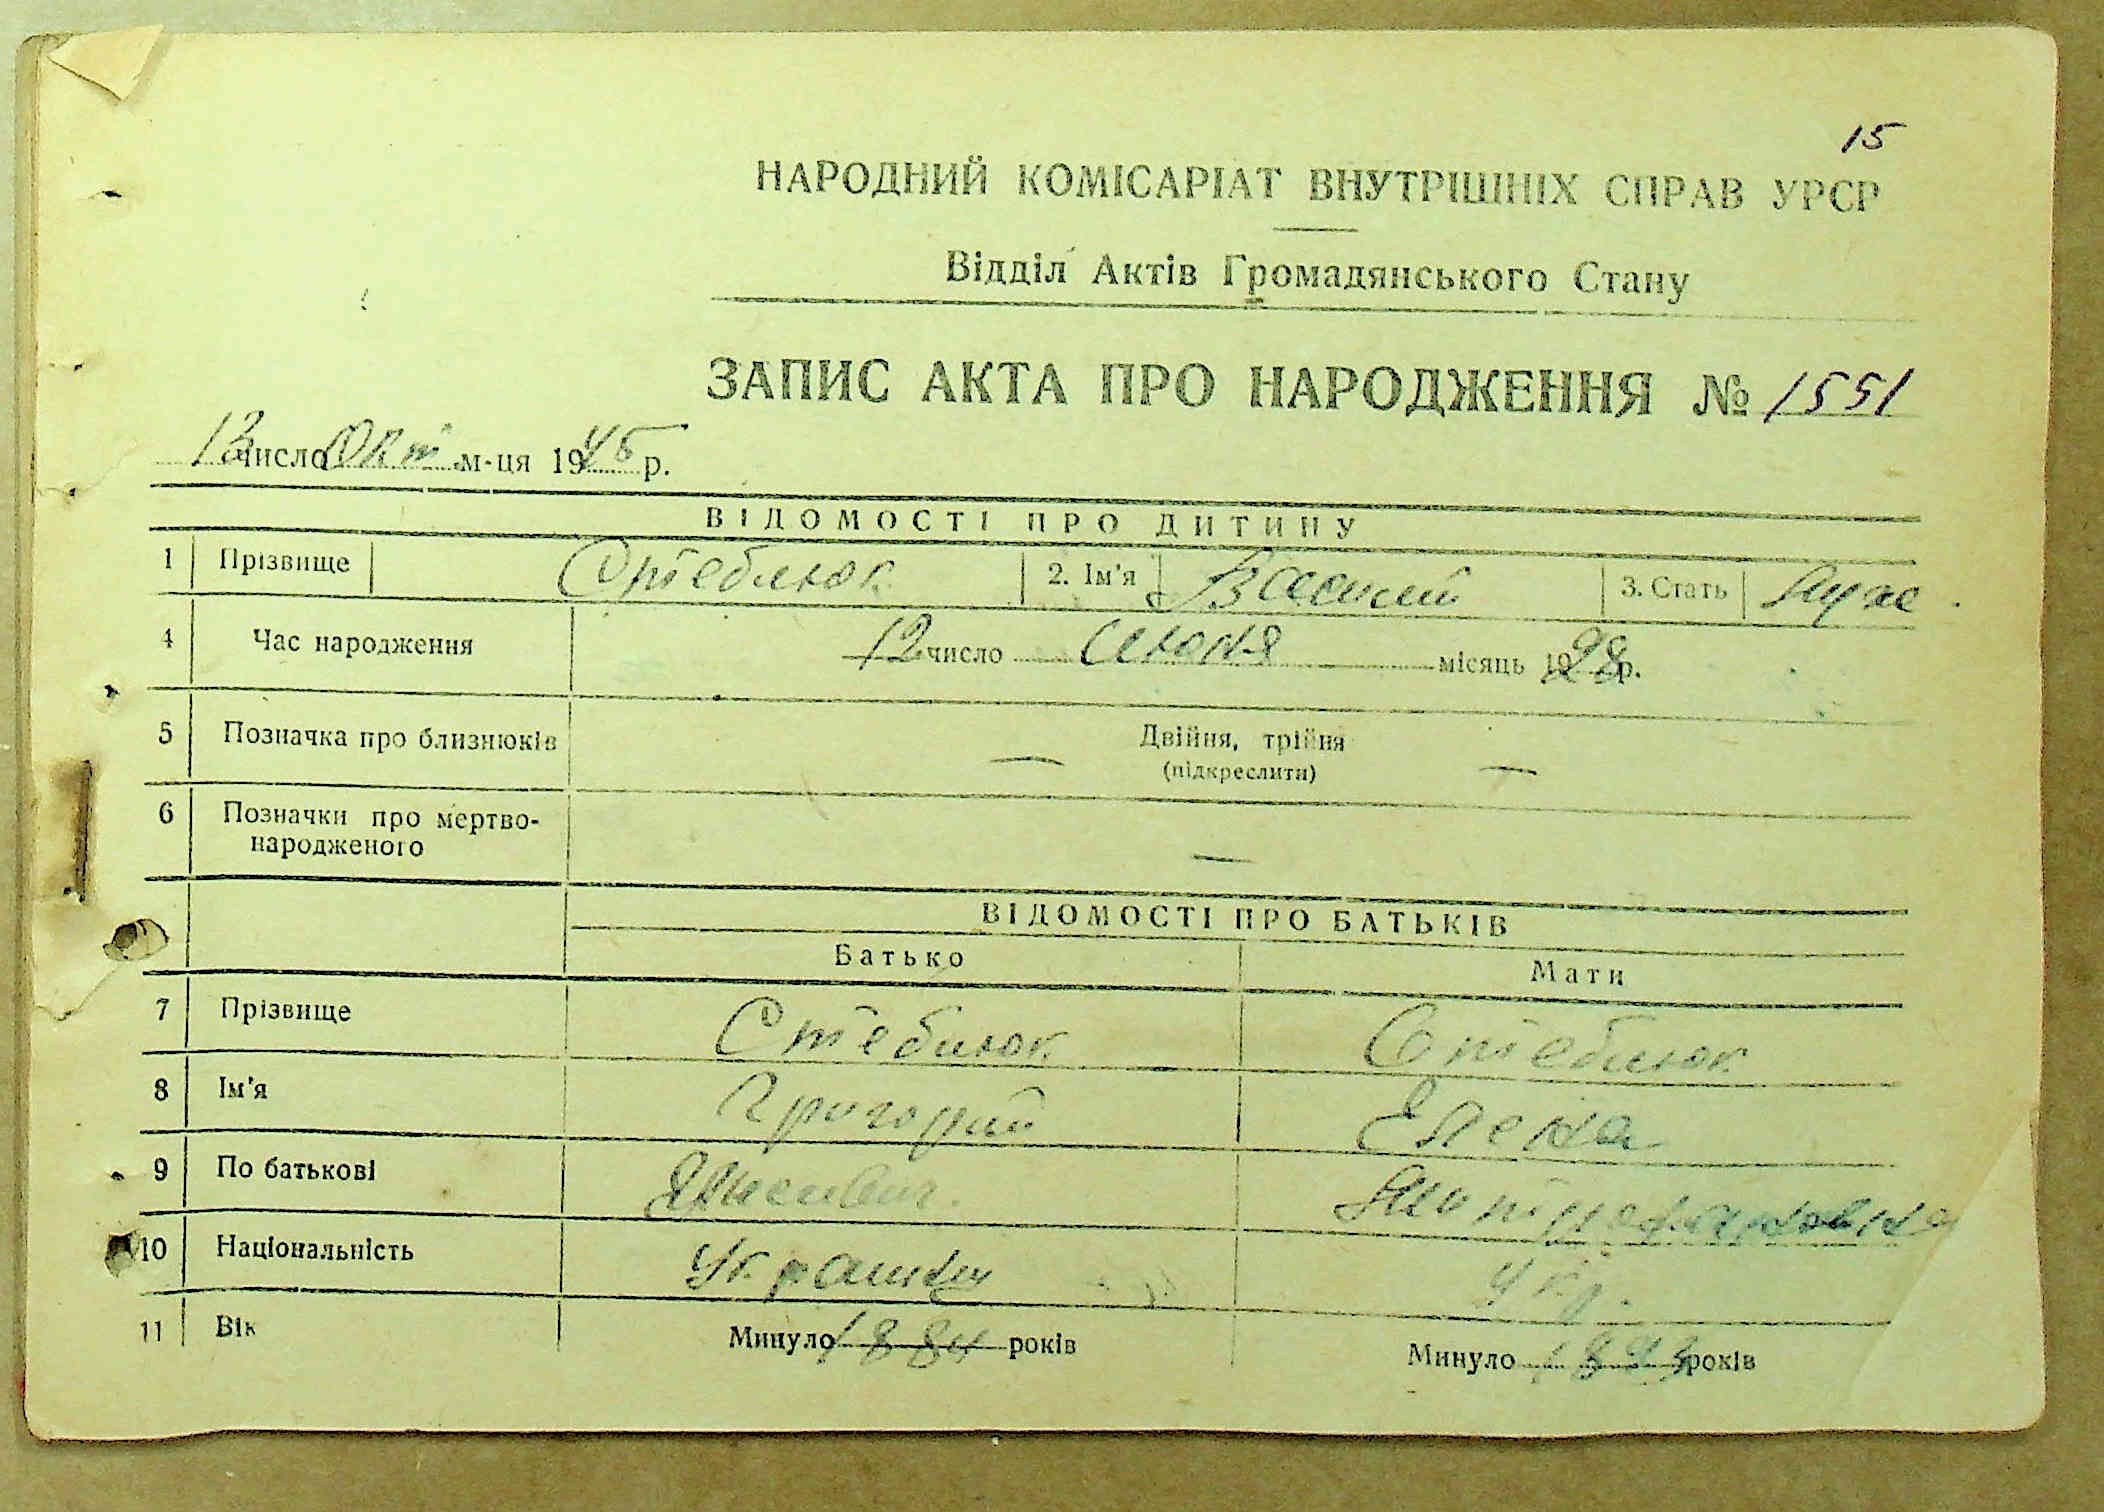 15
НАРОДНИЙ КОМІСАРІАТ ВНУТРІШНІХ СПРАВ УРСР
Відділ Актів Громадянського Стану
ЗАПИС АКТА ПРО НАРОДЖЕННЯ № 1551
13 число Окт м-ця 1945 р.
ВІДОМОСТІ ПРО ДИТИНУ
1 Прізвище Стеблюк 2. Ім'я Василий 3. Стать муж
4 Час народження 12 число июня місяць 1928 р.
5 Позначка про близнюків — Двійня, трійня —
(підкреслити)
6 Позначки про мертво-
народженого —
ВІДОМОСТІ ПРО БАТЬКІВ
Батько Мати
7 Прізвище Стеблюк Стеблюк
8 Ім'я Григорий Елена
9 По батькові
10 Національність Укр.
11 Вік Минуло 1884 років Минуло 1893 років